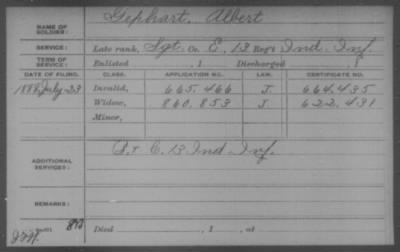 NAME OF SOLDIER: Gephart, Albert
SERVICE: Late rank, Sgt. Co. E, 13 Reg't Ind. Inf.
TERM OF SERVICE: Enlisted , 1 Discharged , 1
DATE OF FILING. CLASS. APPLICATION NO. LAW. CERTIFICATE NO.
1888 July 23 Invalid, 665.466 J. 664.435
Widow, 860.853 J. 622.431
Minor,
ADDITIONAL SERVICES: E. 13 Ind. Inf.
REMARKS:
Died , 1 , at